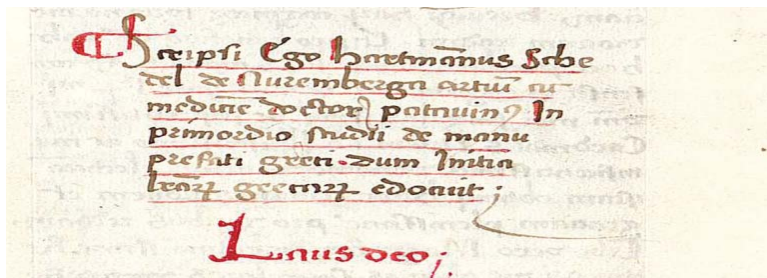 Scripsi Ego hartmãnus Sche
del de Nuremberga artiũ cu
medicĩe doctor patauinꝰ In
primordio studii de manu
prefati greci dum Initia
lrãrꝝ grecarꝝ edocuit ;
Laus deo ;